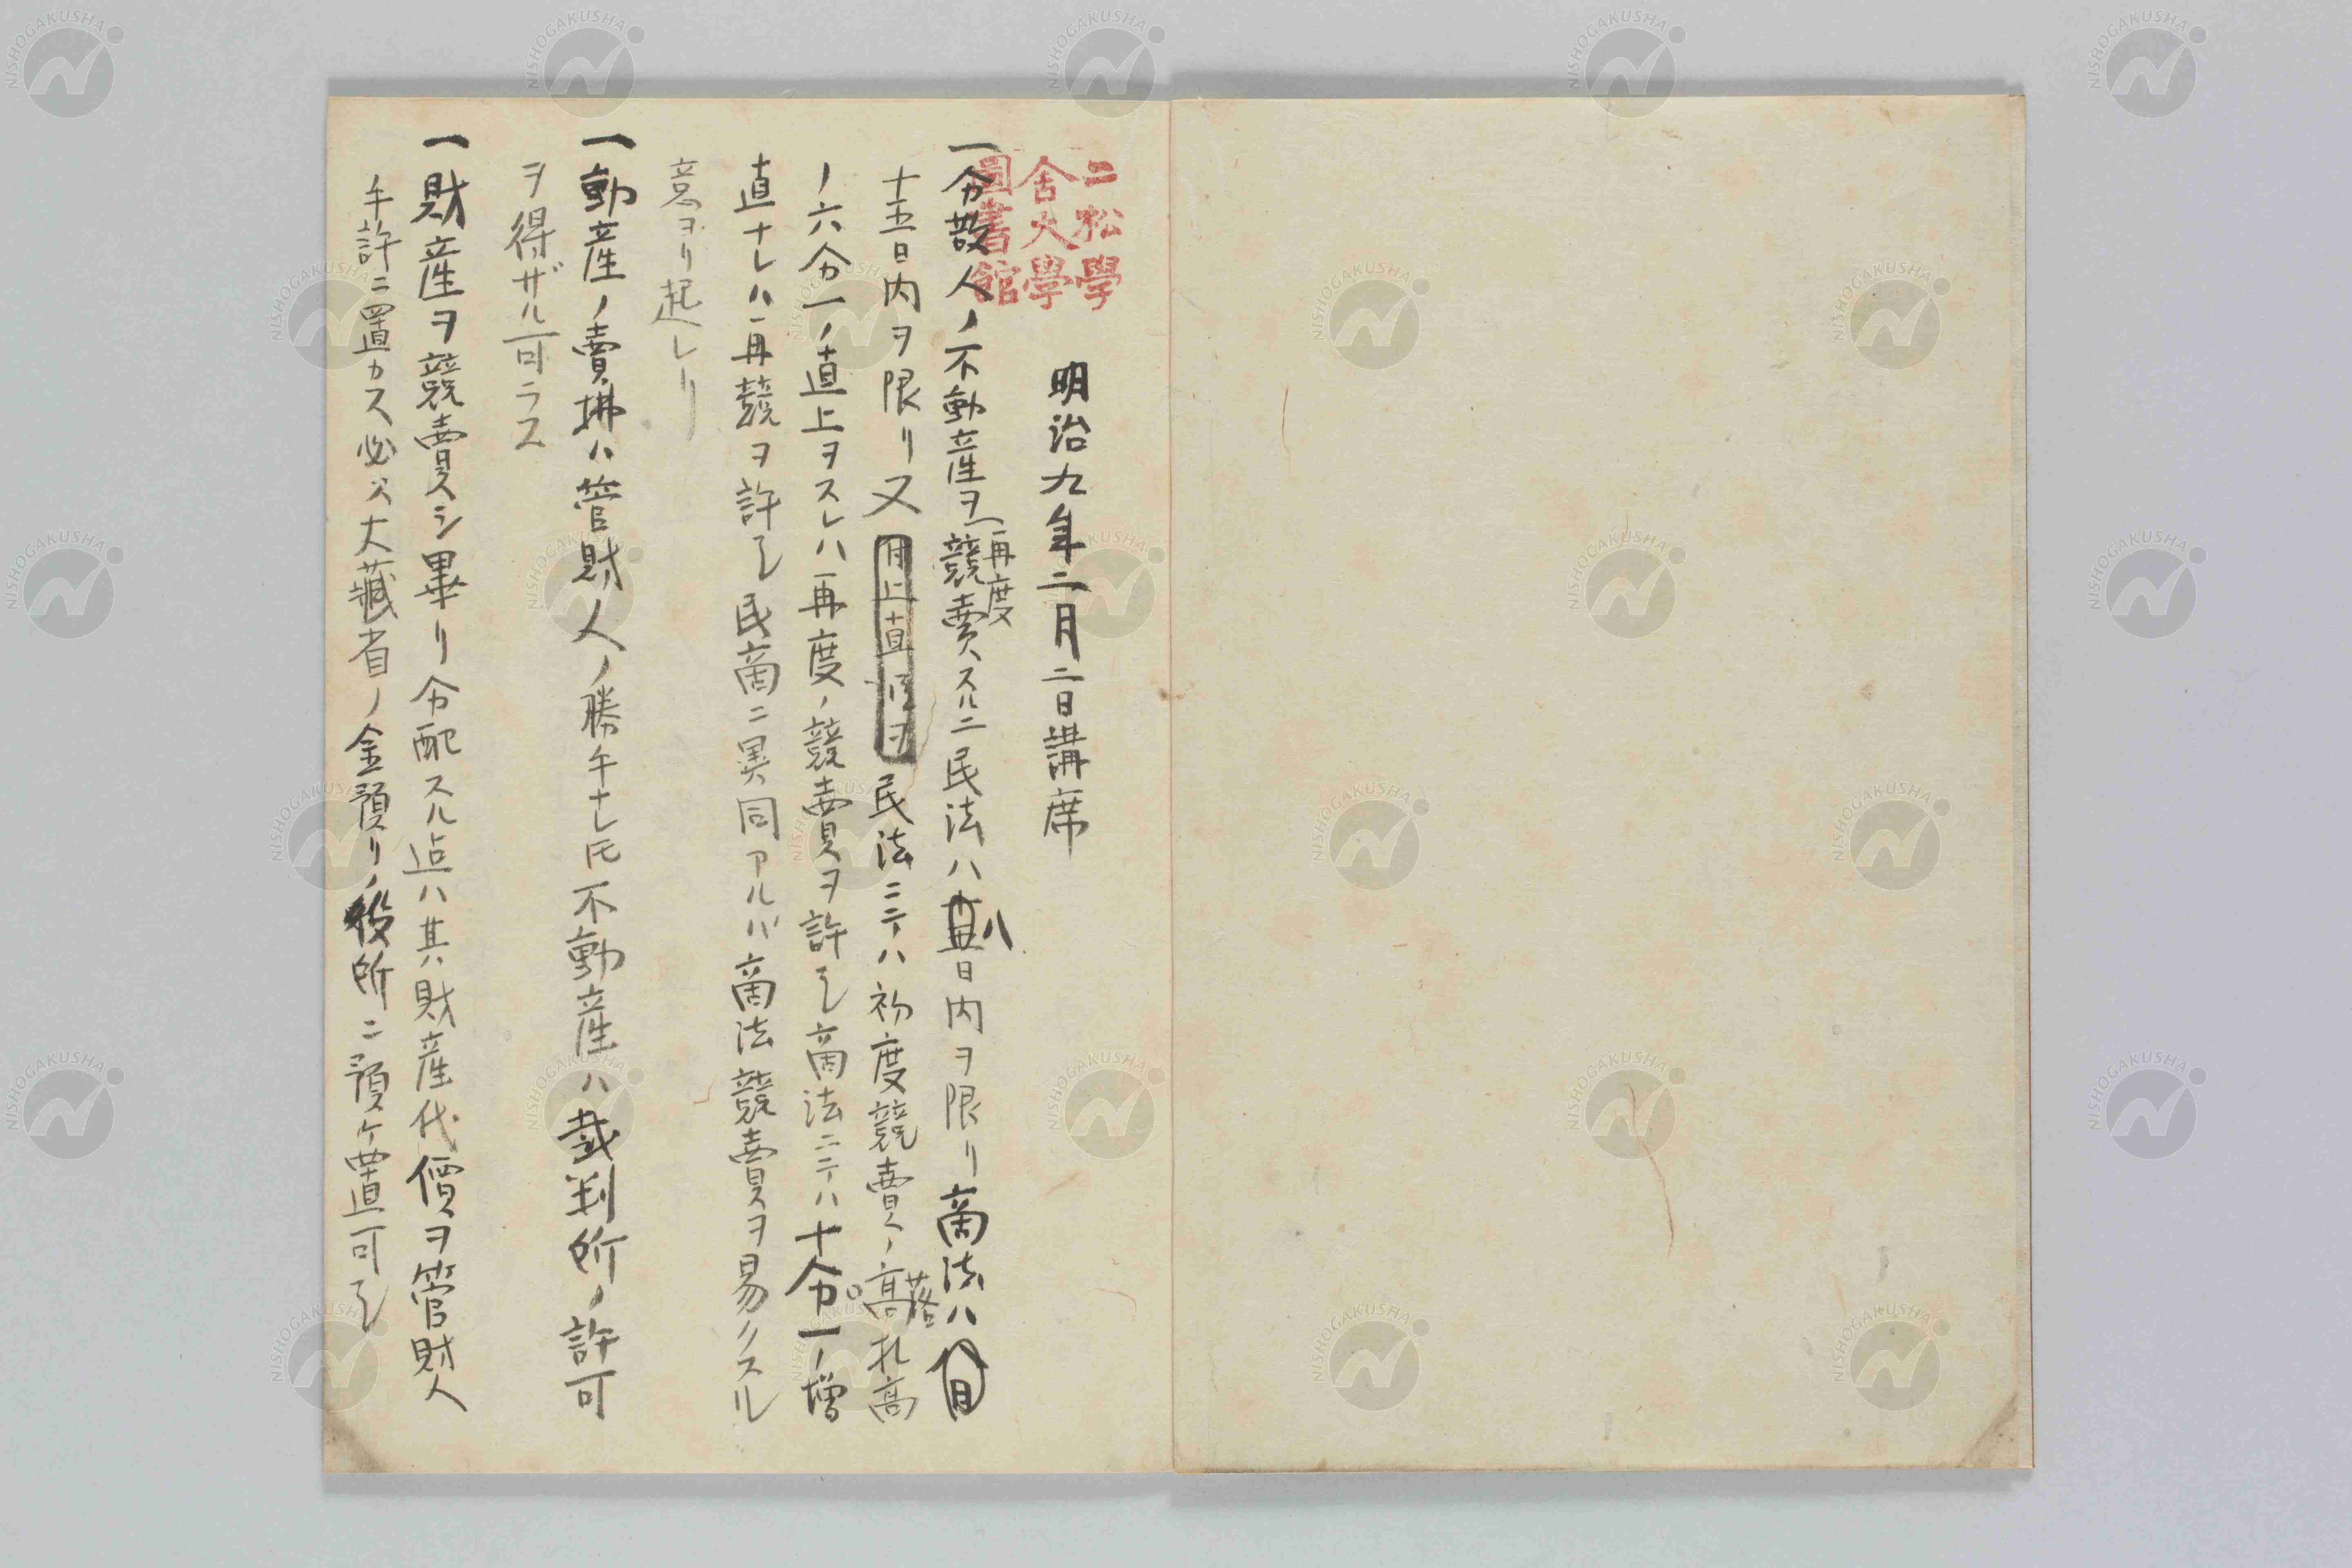 二松學
舍大學
圖書館
明治九年二月二日講席
一分散人ノ不動産ヲ再度競賣スルニ民法ハ八日内ヲ限リ商法ハ
十五日内ヲ限リ又民法ニテハ初度競賣ノ落札高
ノ六分一ノ直上ヲスレハ再度ノ競賣ヲ許シ商法ニテハ十分一ノ増
直ナレハ再競ヲ許シ民商ニ異同アルハ商法競賣ヲ易クスル
意ヨリ起レリ
一動産ノ賣拂ハ管財人ノ勝手ナレ𪜈不動産ハ裁判所ノ許可
ヲ得ザル可ラス
一財産ヲ競賣シ畢リ分配スル迠ハ其財産代價ヲ管財人
手許ニ置カス必ス大藏省ノ金預リノ役所ニ預ケ置可シ
NISHOGAKUSHA